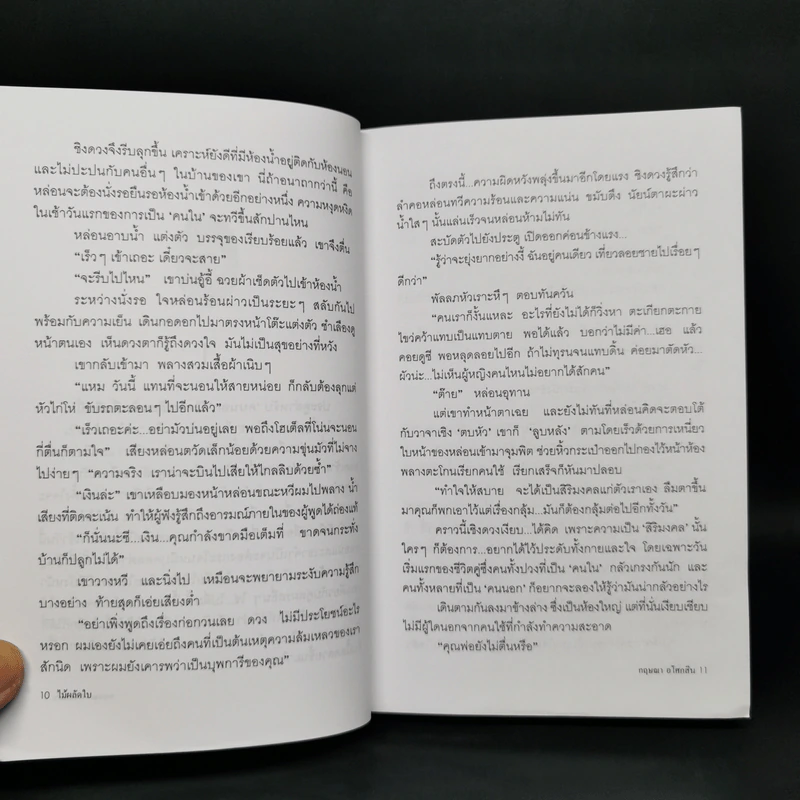 ชิงดวงจึงรีบลุกขึ้น เคราะห์ยังดีที่มีห้องน้ำอยู่ติดกับห้องนอน
และไม่ปะปนกับคนอื่นๆ ในบ้านของเขา นี่ถ้าอนาถากว่านี้ คือ
หล่อนจะต้องนั่งรอยืนรอห้องน้ำเข้าด้วยอีกอย่างหนึ่ง ความหงุดหงิด
ในเช้าวันแรกของการเป็น ‘คนใน’ จะทวีขึ้นสักปานไหน
หล่อนอาบน้ำ แต่งตัว บรรจุของเรียบร้อยแล้ว เขาจึงตื่น
“เร็วๆ เข้าเถอะ เดี๋ยวจะสาย”
“จะรีบไปไหน” เขาบ่นอู้อี้ ฉวยผ้าเช็ดตัวไปเข้าห้องน้ำ
ระหว่างนั่งรอ ใจหล่อนร้อนผ่าวเป็นระยะๆ สลับกันไป
พร้อมกับความเย็น เดินกอดอกไปมาตรงหน้าโต๊ะแต่งตัว ชำเลืองดู
หน้าตนเอง เห็นดวงตาก็รู้ถึงดวงใจ มันไม่เป็นสุขอย่างที่หวัง
เขากลับเข้ามา พลางสวมเสื้อผ้าเนิบๆ
“แหม วันนี้ แทนที่จะนอนให้สายหน่อย ก็กลับต้องลุกแต่
หัวไก่โห่ ขับรถตะลอนๆ ไปอีกแล้ว”
“เร็วเถอะค่ะ...อย่ามัวบ่นอยู่เลย พอถึงโฮเต็ลที่โน่นจะนอน
กี่ตื่นก็ตามใจ” เสียงหล่อนตวัดเล็กน้อยด้วยความขุ่นมัวที่ไม่จาง
ไปง่ายๆ “ความจริง เราน่าจะบินไปเสียให้ไกลลิบด้วยซ้ำ”
“เงินล่ะ” เขาเหลือบมองหน้าหล่อนขณะหวีผมไปพลาง น้ำ
เสียงที่ติดจะเน้น ทำให้ผู้ฟังรู้สึกถึงอารมณ์ภายในของผู้พูดได้ถ่องแท้
“ก็นั่นนะซี...เงิน...คุณกำลังขาดมือเต็มที่ ขาดจนกระทั่ง
บ้านก็ปลูกไม่ได้”
เขาวางหวี และนิ่งไป เหมือนจะพยายามระงับความรู้สึก
บางอย่าง ท้ายสุดก็เอ่ยเสียงต่ำ
“อย่าเพิ่งพูดถึงเรื่องก่อกวนเลย ดวง ไม่มีประโยชน์อะไร
หรอก ผมเองยังไม่เคยเอ่ยถึงคนที่เป็นต้นเหตุความล้มเหลวของเรา
สักนิด เพราะผมยังเคารพว่าเป็นบุพการีของคุณ”
10 ไม้ผลัดใบ
ถึงตรงนี้...ความผิดหวังพลุ่งขึ้นมาอีกโดยแรง ชิงดวงรู้สึกว่า
ลำคอหล่อนทวีความร้อนและความแน่น ขมับตึง นัยน์ตาผะผ่าว
น้ำใสๆ นั้นแล่นเร็วจนหล่อนห้ามไม่ทัน
สะบัดตัวไปยังประตู เปิดออกค่อนข้างแรง...
“รู้ว่าจะยุ่งยากอย่างงี้ ฉันอยู่คนเดียว เที่ยวลอยชายไปเรื่อยๆ
ดีกว่า”
พัลลภหัวเราะหึๆ ตอบทันควัน
“คนเราก็งั้นแหละ อะไรที่ยังไม่ได้ก็วิ่งหา ตะเกียกตะกาย
ไขว่คว้าแทบเป็นแทบตาย พอได้แล้ว บอกว่าไม่มีค่า...เฮอ แล้ว
คอยดูซี พอหลุดลอยไปอีก ถ้าไม่ทุรนจนแทบดิ้น ค่อยมาตัดหัว...
ผัวน่ะ...ไม่เห็นผู้หญิงคนไหนไม่อยากได้สักคน”
“ต๊าย” หล่อนอุทาน
แต่เขาทำหน้าตาเฉย และยังไม่ทันที่หล่อนคิดจะตอบโต้
กับวาจาเชิง ‘ตบหัว’ เขาก็ ‘ลูบหลัง’ ตามโดยเร็วด้วยการเหนี่ยว
ใบหน้าของหล่อนเข้ามาจุมพิต ช่วยหิ้วกระเป๋าออกไปกองไว้หน้าห้อง
พลางตะโกนเรียกคนใช้ เรียกเสร็จก็หันมาปลอบ
“ทำใจให้สบาย จะได้เป็นสิริมงคลแก่ตัวเราเอง ลืมตาขึ้น
มาคุณก็พกเอาไว้แต่เรื่องกลุ้ม...มันก็ต้องกลุ้มต่อไปอีกทั้งวัน”
คราวนี้ชิงดวงเงียบ...ได้คิด เพราะความเป็น ‘สิริมงคล’ นั้น
ใครๆ ก็ต้องการ...อยากได้ไว้ประดับทั้งกายและใจ โดยเฉพาะวัน
เริ่มแรกของชีวิตคู่ซึ่งคนทั้งปวงที่เป็น ‘คนใน’ กลัวเกรงกันนัก และ
คนทั้งหลายที่เป็น ‘คนนอก’ ก็อยากจะลองให้รู้ว่ามันน่ากลัวอย่างไร
เดินตามกันลงมาข้างล่าง ซึ่งเป็นห้องใหญ่ แต่ที่นั่นเงียบเชียบ
ไม่มีผู้ใดนอกจากคนใช้ที่กำลังทำความสะอาด
“คุณพ่อยังไม่ตื่นหรือ”
กฤษณา อโศกสิน 11